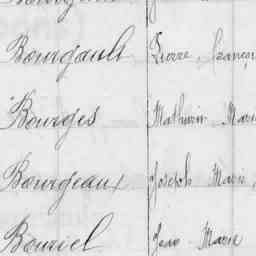 Bourgault Pierre, Franço
Bourges Mathurin Marie
Bourgeaux Joseph Marie,
Bouriel Jean Marie